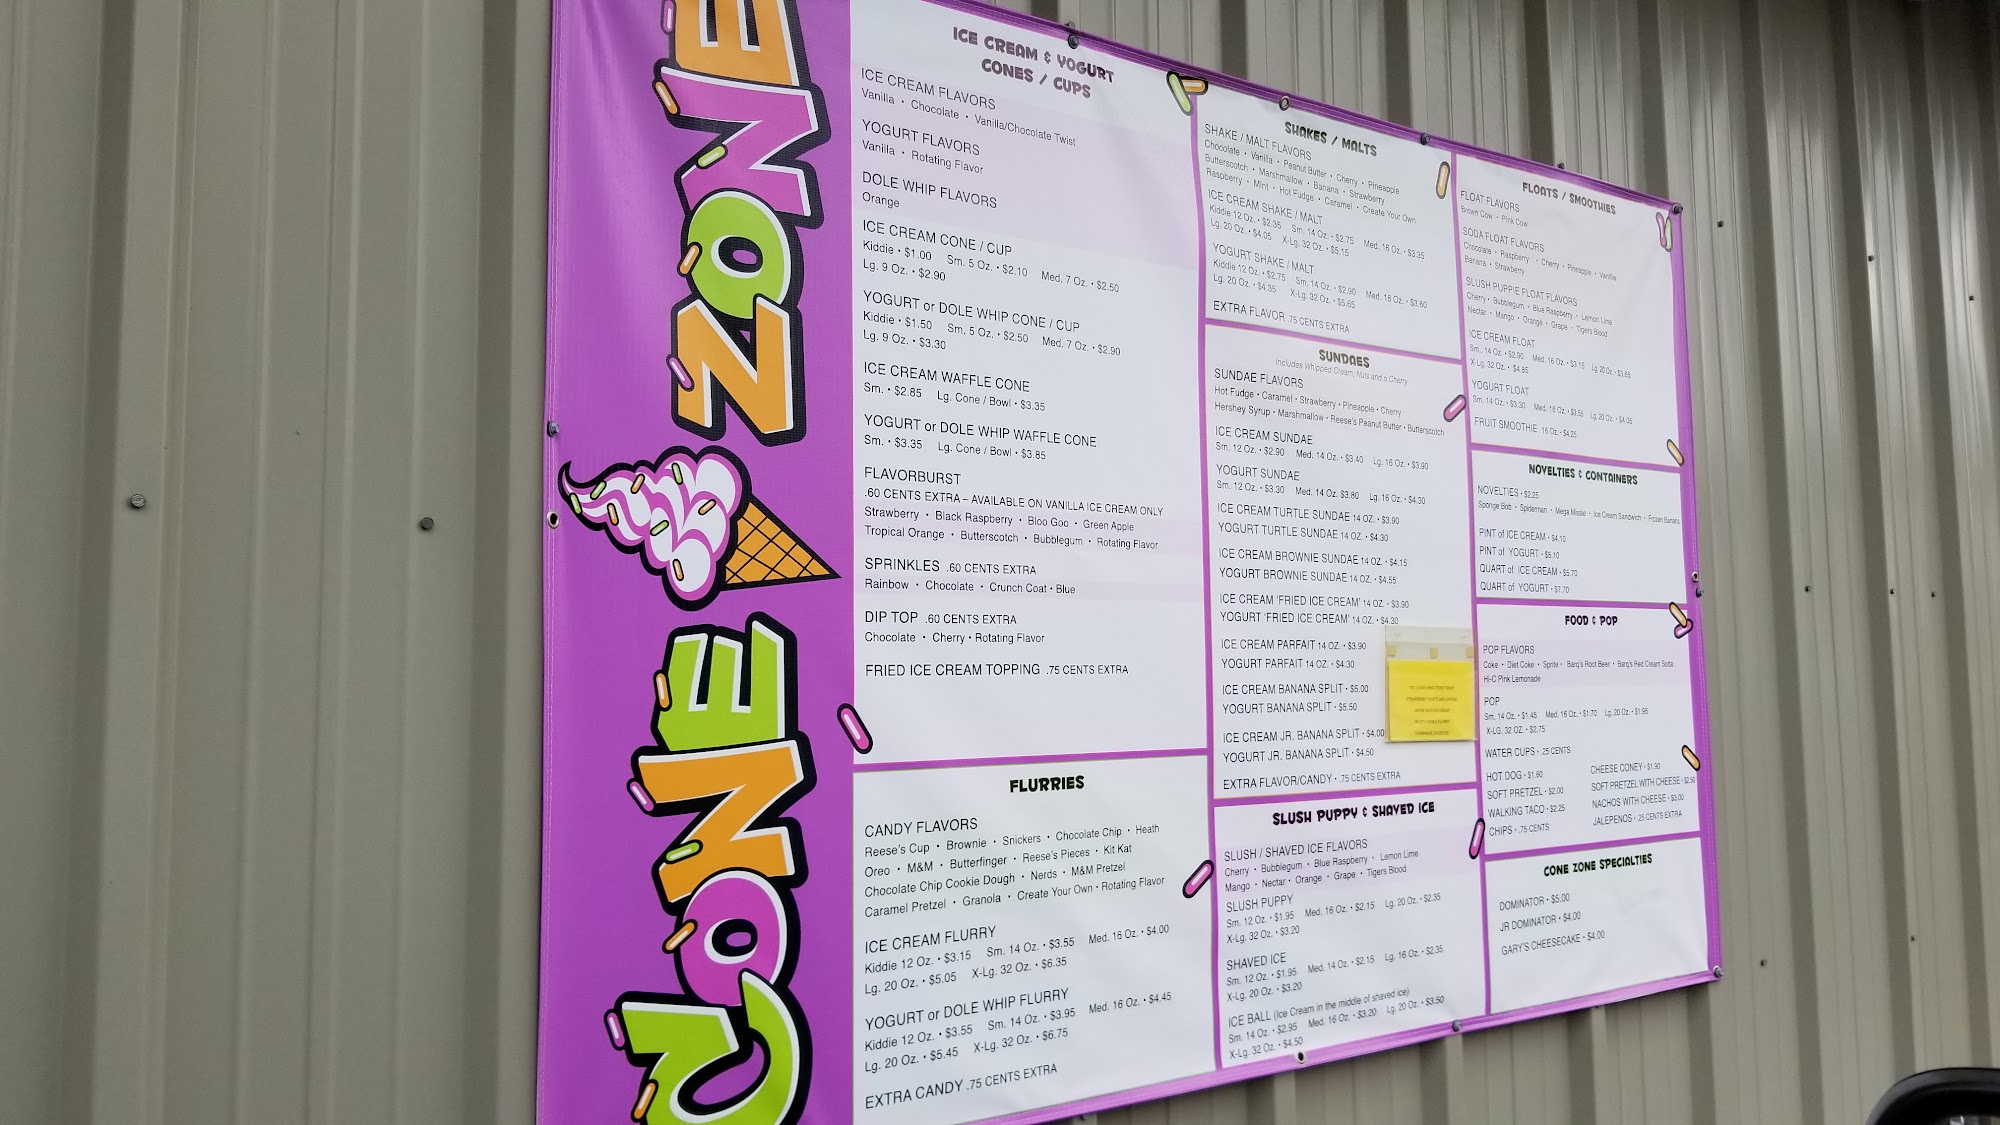 CONE ZONE
ICE CREAM & YOGURT
CONES / CUPS
ICE CREAM FLAVORS
Vanilla • Chocolate • Vanilla/Chocolate Twist
YOGURT FLAVORS
Vanilla • Rotating Flavor
DOLE WHIP FLAVORS
Orange
ICE CREAM CONE / CUP
Kiddie • $1.00 Sm. 5 Oz. • $2.10 Med. 7 Oz. • $2.50
Lg. 9 Oz. • $2.90
YOGURT or DOLE WHIP CONE / CUP
Kiddie • $1.50 Sm. 5 Oz. • $2.50 Med. 7 Oz. • $2.90
Lg. 9 Oz. • $3.30
ICE CREAM WAFFLE CONE
Sm. • $2.85 Lg. Cone / Bowl • $3.35
YOGURT or DOLE WHIP WAFFLE CONE
Sm. • $3.35 Lg. Cone / Bowl • $3.85
FLAVORBURST
.60 CENTS EXTRA – AVAILABLE ON VANILLA ICE CREAM ONLY
Strawberry • Black Raspberry • Bloo Goo • Green Apple
Tropical Orange • Butterscotch • Bubblegum • Rotating Flavor
SPRINKLES .60 CENTS EXTRA
Rainbow • Chocolate • Crunch Coat • Blue
DIP TOP .60 CENTS EXTRA
Chocolate • Cherry • Rotating Flavor
FRIED ICE CREAM TOPPING .75 CENTS EXTRA
FLURRIES
CANDY FLAVORS
Reese's Cup • Brownie • Snickers • Chocolate Chip • Heath
Oreo • M&M • Butterfinger • Reese's Pieces • Kit Kat
Chocolate Chip Cookie Dough • Nerds • M&M Pretzel
Caramel Pretzel • Granola • Create Your Own • Rotating Flavor
ICE CREAM FLURRY
Kiddie 12 Oz. • $3.15 Sm. 14 Oz. • $3.55 Med. 16 Oz. • $4.00
Lg. 20 Oz. • $5.05 X-Lg. 32 Oz. • $6.35
YOGURT or DOLE WHIP FLURRY
Kiddie 12 Oz. • $3.55 Sm. 14 Oz. • $3.95 Med. 16 Oz. • $4.45
Lg. 20 Oz. • $5.45 X-Lg. 32 Oz. • $6.75
EXTRA CANDY .75 CENTS EXTRA
SHAKES / MALTS
SHAKE / MALT FLAVORS
Chocolate • Vanilla • Peanut Butter • Cherry • Pineapple
Butterscotch • Marshmallow • Banana • Strawberry
Raspberry • Mint • Hot Fudge • Caramel • Create Your Own
ICE CREAM SHAKE / MALT
Kiddie 12 Oz. • $2.35 Sm. 14 Oz. • $2.75 Med. 16 Oz. • $3.35
Lg. 20 Oz. • $4.05 X-Lg. 32 Oz. • $5.15
YOGURT SHAKE / MALT
Kiddie 12 Oz. • $2.75 Sm. 14 Oz. • $2.90 Med. 16 Oz. • $3.60
Lg. 20 Oz. • $4.35 X-Lg. 32 Oz. • $5.65
EXTRA FLAVOR .75 CENTS EXTRA
SUNDAES
Includes Whipped Cream, Nuts and a Cherry
SUNDAE FLAVORS
Hot Fudge • Caramel • Strawberry • Pineapple • Cherry
Hershey Syrup • Marshmallow • Reese's Peanut Butter • Butterscotch
ICE CREAM SUNDAE
Sm. 12 Oz. • $2.90 Med. 14 Oz. • $3.40 Lg. 16 Oz. • $3.90
YOGURT SUNDAE
Sm. 12 Oz. • $3.30 Med. 14 Oz. $3.80 Lg. 16 Oz. • $4.30
ICE CREAM TURTLE SUNDAE 14 OZ. • $3.90
YOGURT TURTLE SUNDAE 14 OZ. • $4.30
ICE CREAM BROWNIE SUNDAE 14 OZ. • $4.15
YOGURT BROWNIE SUNDAE 14 OZ. • $4.55
ICE CREAM 'FRIED ICE CREAM' 14 OZ. • $3.90
YOGURT 'FRIED ICE CREAM' 14 OZ. • $4.30
ICE CREAM PARFAIT 14 OZ. • $3.90
YOGURT PARFAIT 14 OZ. • $4.30
ICE CREAM BANANA SPLIT • $5.00
YOGURT BANANA SPLIT • $5.50
ICE CREAM JR. BANANA SPLIT • $4.00
YOGURT JR. BANANA SPLIT • $4.50
EXTRA FLAVOR/CANDY • .75 CENTS EXTRA
SLUSH PUPPY & SHAVED ICE
SLUSH / SHAVED ICE FLAVORS
Cherry • Bubblegum • Blue Raspberry • Lemon Lime
Mango • Nectar • Orange • Grape • Tigers Blood
SLUSH PUPPY
Sm. 12 Oz. • $1.95 Med. 16 Oz. • $2.15 Lg. 20 Oz. • $2.35
X-Lg. 32 Oz. • $3.20
SHAVED ICE
Sm. 12 Oz. • $1.95 Med. 14 Oz. • $2.15 Lg. 16 Oz. • $2.35
X-Lg. 20 Oz. • $3.20
ICE BALL (Ice Cream in the middle of shaved ice)
Sm. 14 Oz. • $2.95 Med. 16 Oz. • $3.20 Lg. 20 Oz. • $3.50
X-Lg. 32 Oz. • $4.50
FLOATS / SMOOTHIES
FLOAT FLAVORS
Brown Cow • Pink Cow
SODA FLOAT FLAVORS
Chocolate • Raspberry • Cherry • Pineapple • Vanilla
Banana • Strawberry
SLUSH PUPPIE FLOAT FLAVORS
Cherry • Bubblegum • Blue Raspberry • Lemon Lime
Nectar • Mango • Orange • Grape • Tigers Blood
ICE CREAM FLOAT
Sm. 14 Oz. • $2.90 Med. 16 Oz. • $3.15 Lg. 20 Oz. • $3.85
X-Lg. 32 Oz. • $4.85
YOGURT FLOAT
Sm. 14 Oz. • $3.30 Med. 16 Oz. • $3.55 Lg. 20 Oz. • $4.05
FRUIT SMOOTHIE 16 Oz. • $4.25
NOVELTIES & CONTAINERS
NOVELTIES • $2.25
Sponge Bob • Spiderman • Mega Missle • Ice Cream Sandwich • Frozen Banana
PINT of ICE CREAM • $4.10
PINT of YOGURT • $5.10
QUART of ICE CREAM • $5.70
QUART of YOGURT • $7.70
FOOD & POP
POP FLAVORS
Coke • Diet Coke • Sprite • Barq's Root Beer • Barq's Red Cream Soda
Hi-C Pink Lemonade
POP
Sm. 14 Oz. • $1.45 Med. 16 Oz. • $1.70 Lg. 20 Oz. • $1.95
X-LG. 32 OZ. • $2.75
WATER CUPS • .25 CENTS
HOT DOG • $1.60
SOFT PRETZEL • $2.00
WALKING TACO • $2.25
CHIPS • .75 CENTS
CHEESE CONEY • $1.90
SOFT PRETZEL WITH CHEESE • $2.50
NACHOS WITH CHEESE • $3.00
JALEPENOS • .25 CENTS EXTRA
CONE ZONE SPECIALTIES
DOMINATOR • $5.00
JR DOMINATOR • $4.00
GARY'S CHEESECAKE • $4.00